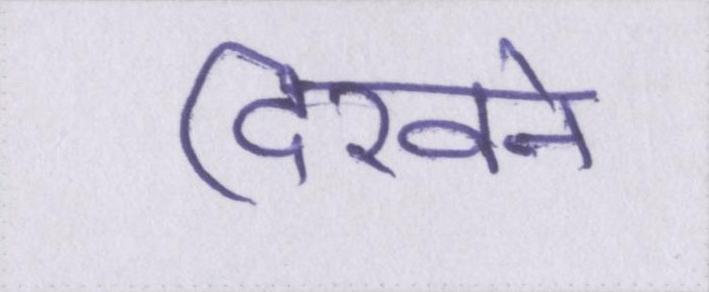 दिखने